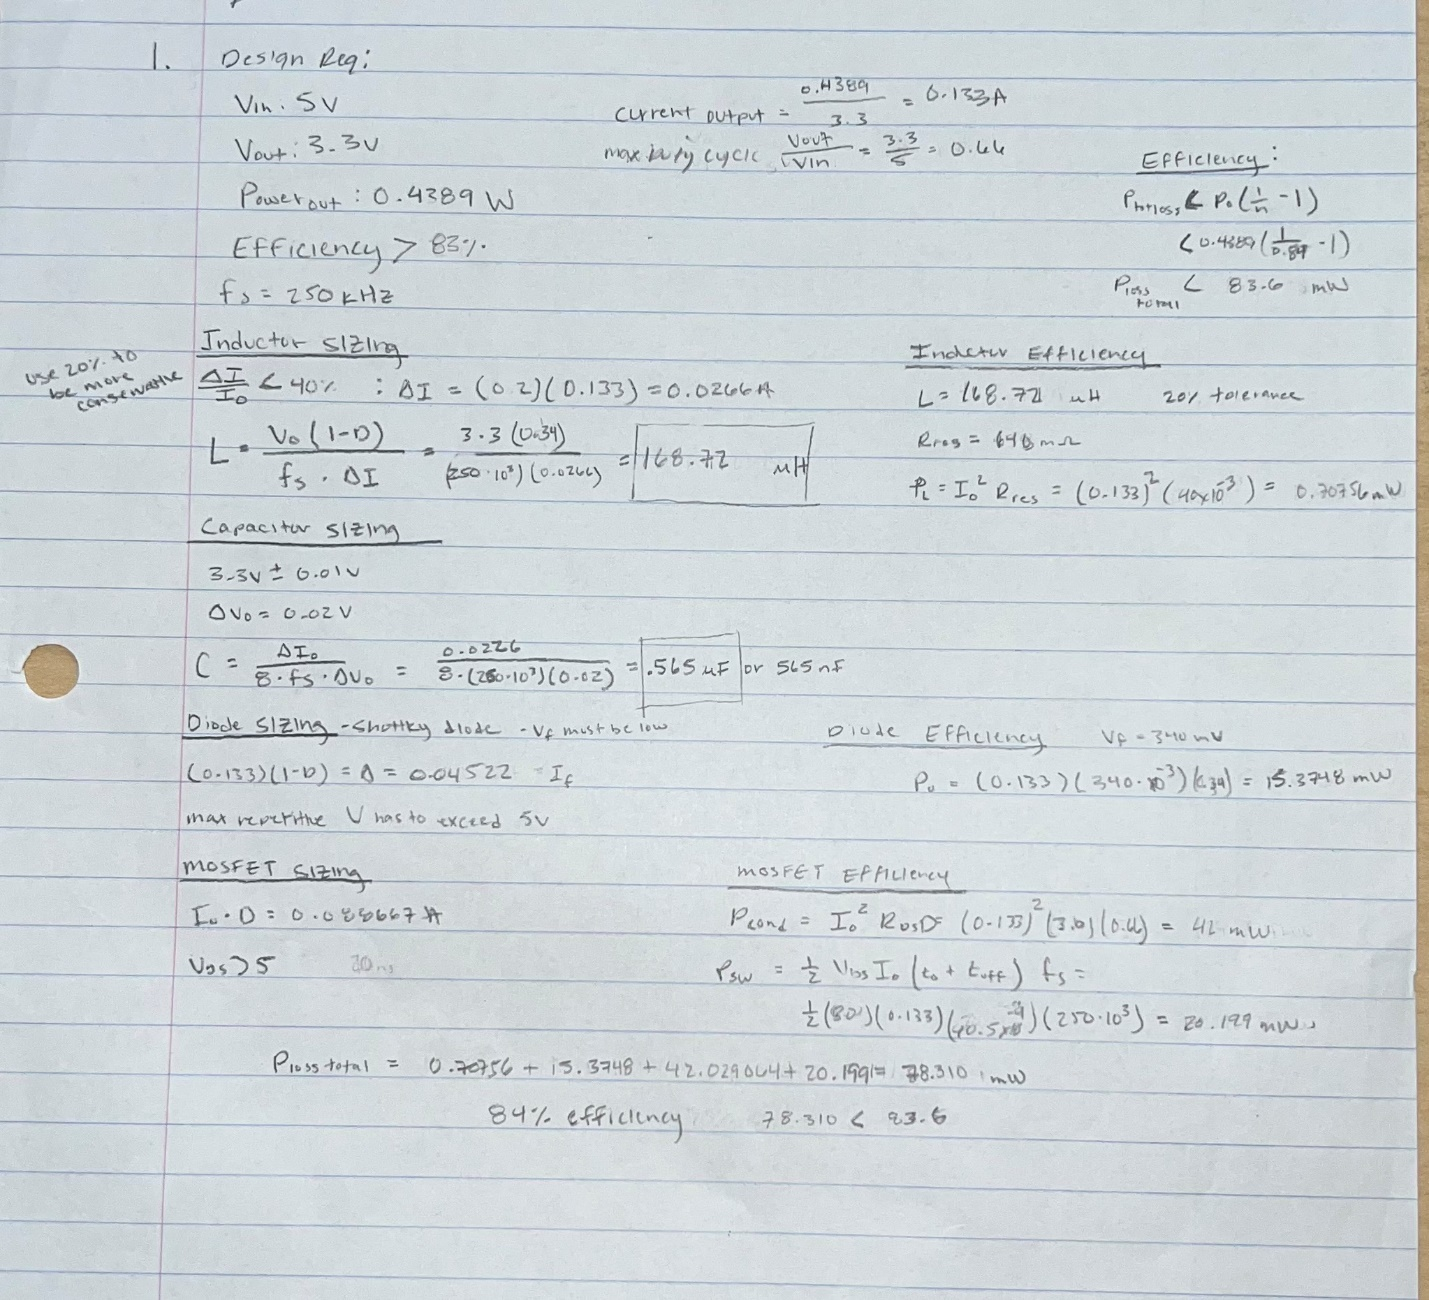 1. Design Req:
Vin: 5V
Vout: 3.3V
Power out: 0.4389 W
Efficiency > 83%
fs = 250 kHz
current output = 0.4389 / 3.3 = 0.133A
max duty cycle Vout / Vin = 3.3 / 5 = 0.66
Efficiency:
< Po (1/n - 1)
< 0.4389 (1/0.84 - 1)
Ploss total < 83.6 mW
Inductor sizing
use 20% to be more conservative
ΔI / Io < 40% : ΔI = (0.2)(0.133) = 0.0266 A
L = Vo (1-D) / fs · ΔI = 3.3 (0.34) / (250·10³)(0.0266) = 168.72 uH
Inductor Efficiency
L = 168.72 uH 20% tolerance
Rres = mΩ
PL = Io² Rres = (0.133)² (40x10⁻³) = 0.70756 mW
Capacitor sizing
3.3V ± 0.01V
ΔVo = 0.02V
C = ΔIo / 8·fs·ΔVo = 0.0226 / 8·(250·10³)(0.02) = .565 uF or 565 nF
Diode sizing - shottky diode - Vf must be low
(0.133)(1-D) = Δ = 0.04522 = If
max repetitive V has to exceed 5V
Diode Efficiency Vf = 340 mV
PD = (0.133)(340·10⁻³)(.34) = 15.3748 mW
MOSFET sizing
Io · D = A
VDS > 5 30ns
MOSFET Efficiency
Pcond = Io² RDSD = (0.133)² (3.0)(0.66) = 42 mW
Psw = ½ VDS Io (to + toff) fs =
½ (80)(0.133)( x10⁻⁹)(250·10³) = 20.199 mW
Ploss total = 0.70756 + 15.3748 + 42.029064 + 20.199 = 78.310 mW
84% efficiency 78.310 < 83.6